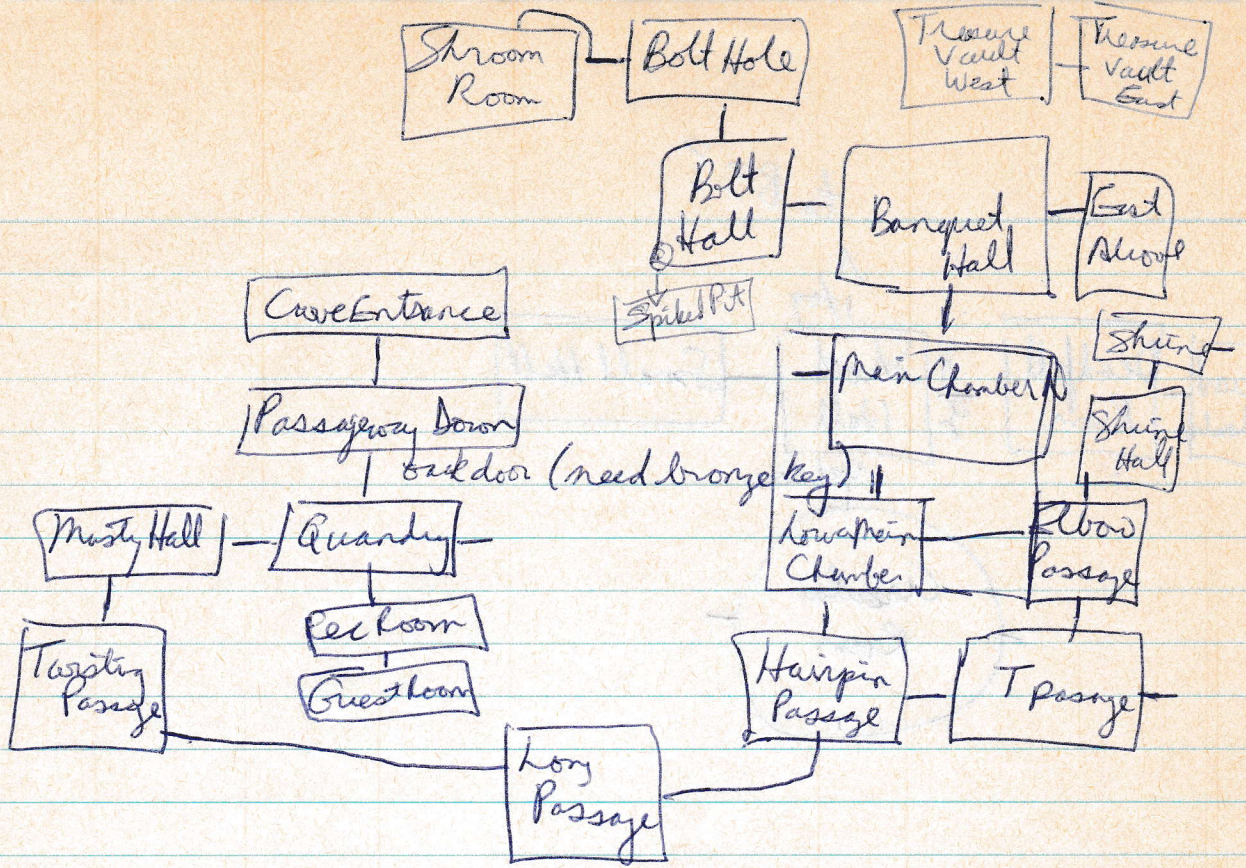 Shroom
Room
Bolt Hole
Treasure
Vault
West
Treasure
Vault
East
Bolt
Hall
Banquet
Hall
East
Alcove
Spiked Pit
Cave Entrance
Shrine
Main Chamber
Passageway Down
Shrine
Hall
back door (need bronze key)
Musty Hall
Quandry
Lower Main
Chamber
Elbow
Passage
Rec Room
Twisting
Passage
Guest Room
Hairpin
Passage
T Passage
Long
Passage